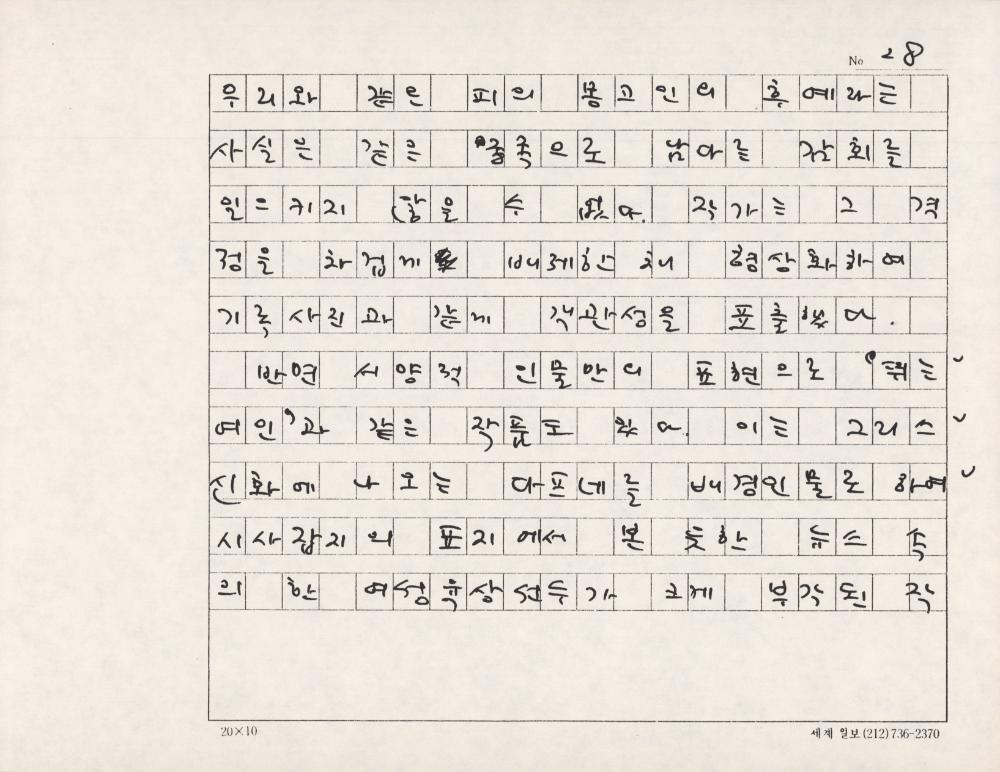 No 28
우리와 같은 피의 몽고인의 후예라는
사실은 같은 굴족으로 남다른 감회를
일으키지 않을 수 없다. 작가는 그 격
정을 차겁게 배제한 채 형상화하여
기록사진과 같게 객관성을 표출했다.
반면 서양적 인물만의 표현으로 '뛰는
여인'과 같은 작품도 있다. 이는 그리스
신화에 나오는 다프네를 배경인물로 하여
시사잡지의 표지에서 본 듯한 뉴스 속
의 한 여성육상선수가 크게 부각된 작
20×10
세계 일보 (212) 736-2370